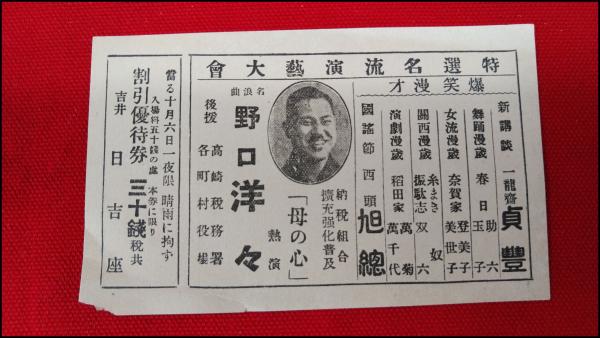 特選名流演藝大會
爆笑漫才
新講談 一龍齋貞豐
舞踊漫歳 春日 助六 玉子
女流漫歳 奈賀家 登美子 美世子
關西漫歳 糸まき 奴 振駄志 双六
演劇漫歳 稲田家 萬菊 千代
國謠節 西頭旭總
納税組合
擴充强化普及
「母の心」熱演
名浪曲 野口洋々
後援 高崎税務署 各町村役場
當る十月六日一夜限 晴雨に拘す
入場料五十錢の處 本券に限り
割引優待券 三十錢 税共
吉井 日吉座